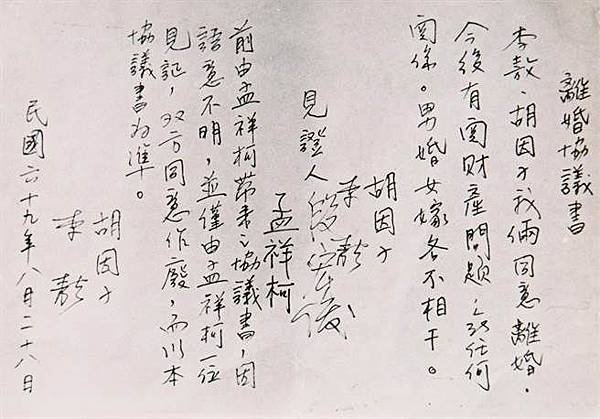 離婚協議書
李敖、胡因子我倆同意離婚。
今後有関財産問題任何
関係。男婚女嫁各不相干。
胡因子
李敖
見證人 段宏俊
孟祥柯
前由孟祥柯帶來之協議書，因
語意不明，並僅由孟祥柯一位
見証，双方同意作廢，而以本
協議書為準。
胡因子
李敖
民國六十九年八月二十八日